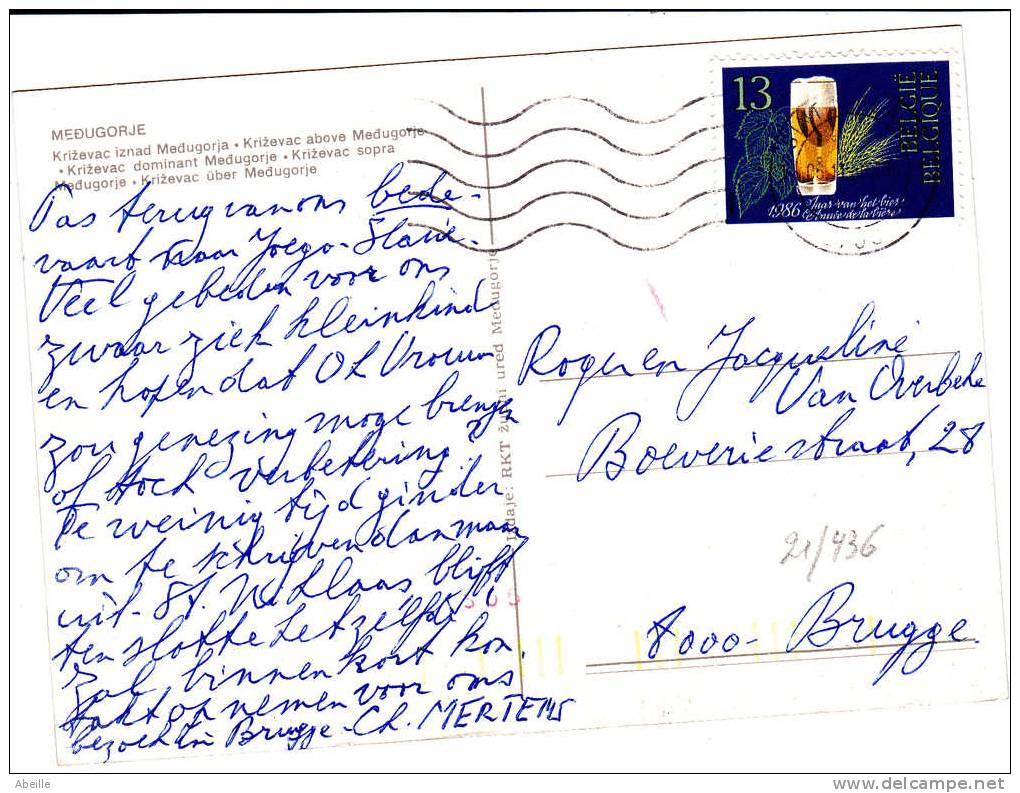 MEĐUGORJE
Križevac iznad Međugorja • Križevac above Međugorje
• Križevac dominant Međugorje • Križevac sopra
Međugorje • Križevac über Međugorje
Pas terug van ons bede-
vaart naar Joego-Slavië.
Veel gebeden voor ons
zwaar ziek kleinkind
en hopen dat OL Vrouw
zou genezing moge brengen
of toch verbetering.
Te weinig tijd ginder
om te schrijven dan maar
uit St. Niklaas blijft
ten slotte hetzelfde
Zal binnenkort kon
takt op nemen voor ons
bezoek in Brugge - Ch. MERTENS
Izdaje: RKT župni ured Međugorje
13
BELGIË
BELGIQUE
1986 Jaar van het bier
Année de la bière
Roger en Jacqueline
Van Overbeke
Boeveriestraat, 28
21/436
8000 - Brugge
Abeille
www.delcampe.net